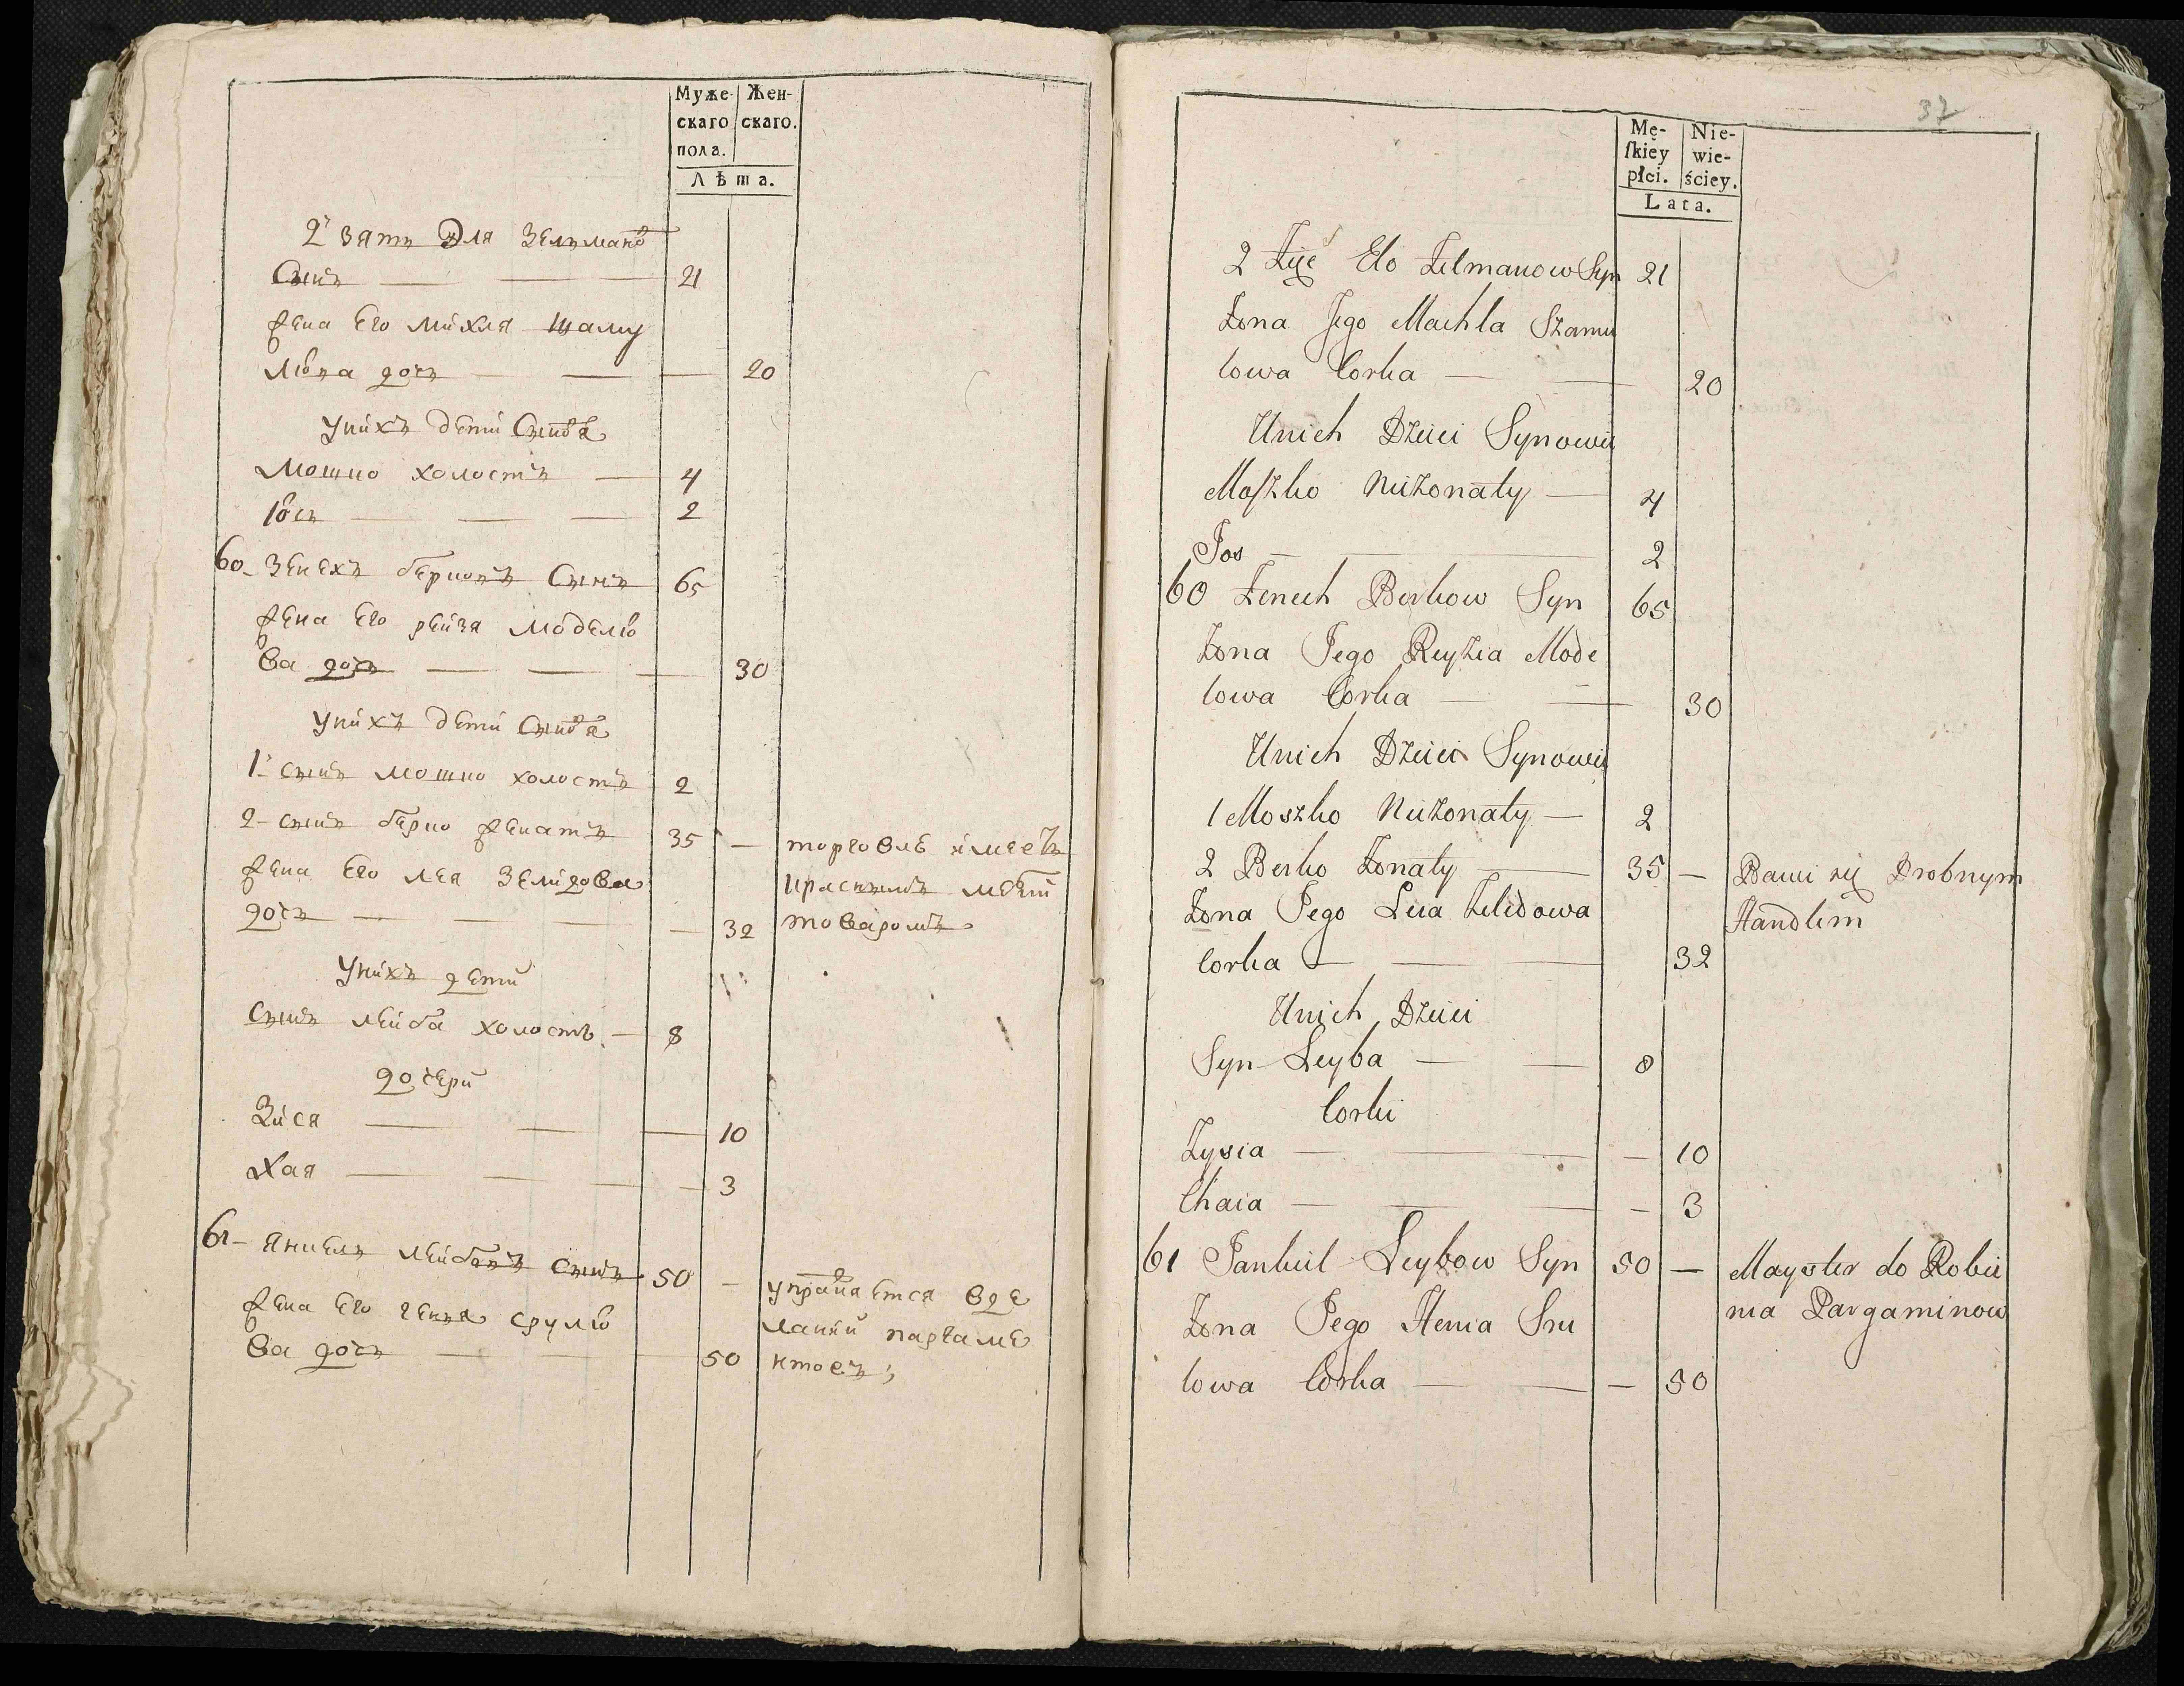 Муже-
скаго
пола.
Жен-
скаго.
Лѣта.
2й зять Эля Зельмано
Сынъ 21
жена его михля шаму
лівна дочь 20
унихъ дети Сынов̾я
Мошко холостъ 4
Іось 2
60 Зенехъ берковъ Сынъ 65
жена его рейзя моделіо
ва дочь 30
унихъ дети Сынов̾я
1й сынъ мошко холостъ 2
2 сынъ берко женатъ 35
торговлѣ имеетъ
жена его лея зелидова
дочь 32
товаромъ
унихъ дети
сынъ лейба холостъ 8
дочери
Зися 10
Хая 3
61 янкель лейбовъ сынъ 50
упражается вде
жена его геня сруліо
лании паргаме
ва дочь 50
нтовъ;
37
Mę-
ſkiey
płci.
Nie-
wie-
ściey.
Lata.
2 Zięć Elo Zelmanow Syn 21
Żona Jego Machla Szamu
lowa Corka 20
Unich Dzieci Synowie
Moſzko Nieżonaty 4
Jos 2
60 Zenech Berkow Syn 65
Żona Jego Reyzia Mode
lowa Corka 30
Unich Dzieci Synowie
1 Moszko Nieżonaty 2
2 Berko Żonaty 35 Bawi się Drobnym
Żona Jego Leia Zelidowa Handlem
Corka 32
Unich Dzieci
Syn Leyba 8
Corki
Zysia 10
Chaia 3
61 Jankiel Leybow Syn 50 Mayster do Robie
Żona Jego Henia Sru nia Pargaminow
lowa Corka 50